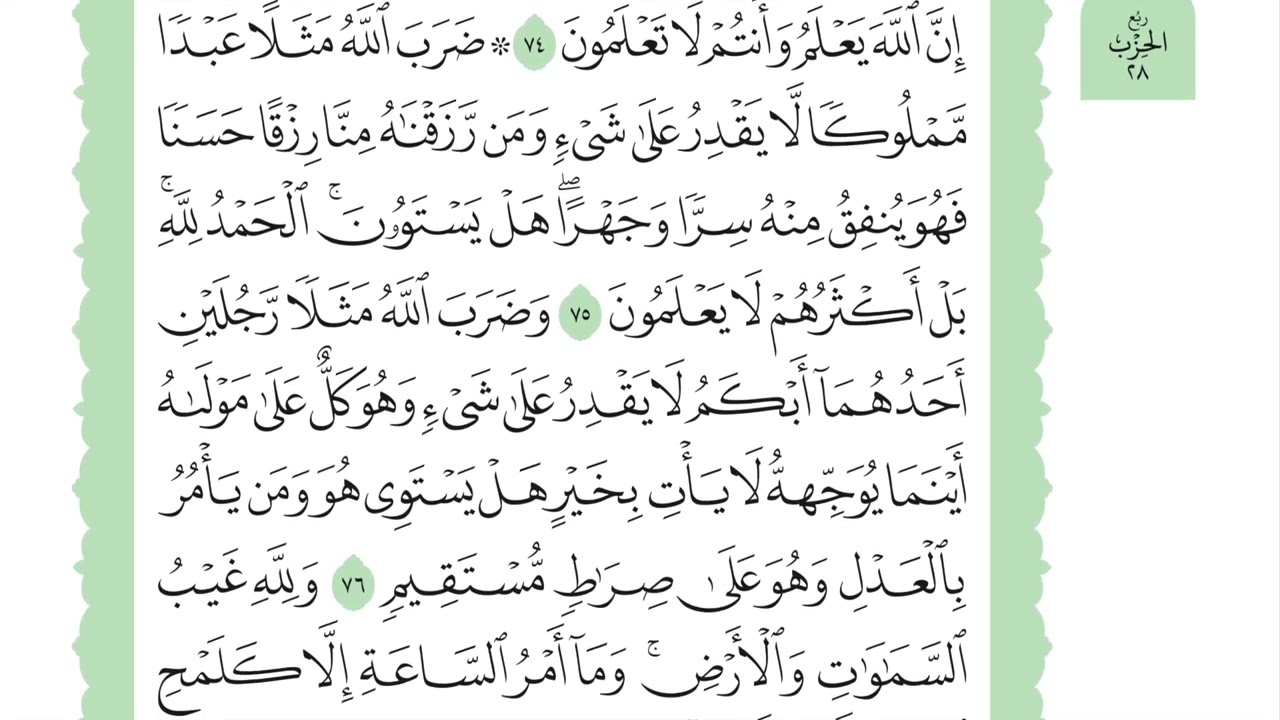 إِنَّ ٱللَّهَ يَعْلَمُ وَأَنتُمْ لَا تَعْلَمُونَ ٧٤ ۞ ضَرَبَ ٱللَّهُ مَثَلًا عَبْدًا
مَّمْلُوكًا لَّا يَقْدِرُ عَلَىٰ شَىْءٍ وَمَن رَّزَقْنَٰهُ مِنَّا رِزْقًا حَسَنًا
فَهُوَ يُنفِقُ مِنْهُ سِرًّا وَجَهْرًا ۖ هَلْ يَسْتَوُۥنَ ۚ ٱلْحَمْدُ لِلَّهِ ۚ
بَلْ أَكْثَرُهُمْ لَا يَعْلَمُونَ ٧٥ وَضَرَبَ ٱللَّهُ مَثَلًا رَّجُلَيْنِ
أَحَدُهُمَآ أَبْكَمُ لَا يَقْدِرُ عَلَىٰ شَىْءٍ وَهُوَ كَلٌّ عَلَىٰ مَوْلَىٰهُ
أَيْنَمَا يُوَجِّههُّ لَا يَأْتِ بِخَيْرٍ هَلْ يَسْتَوِى هُوَ وَمَن يَأْمُرُ
بِٱلْعَدْلِ وَهُوَ عَلَىٰ صِرَٰطٍ مُّسْتَقِيمٍ ٧٦ وَلِلَّهِ غَيْبُ
ٱلسَّمَٰوَٰتِ وَٱلْأَرْضِ ۚ وَمَآ أَمْرُ ٱلسَّاعَةِ إِلَّا كَلَمْحِ
رُبْع
الحِزْب
٢٨